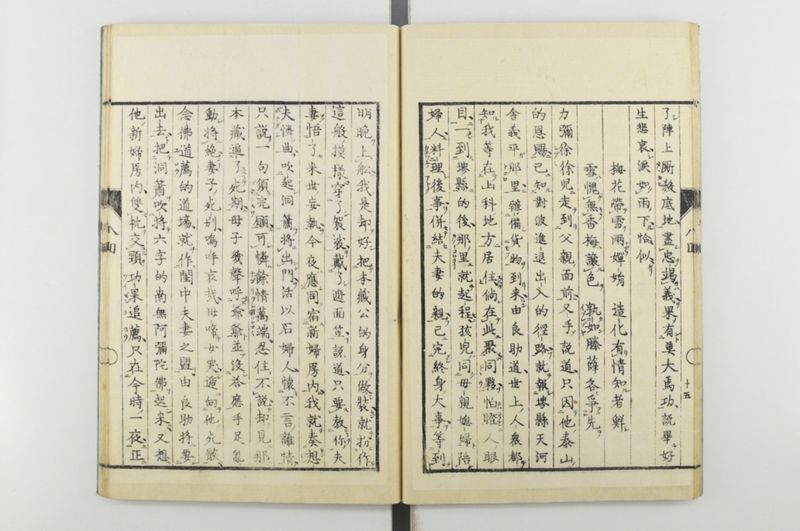 了陣上廝殺底地盡忠竭義果有莫大馬功說畢好
生悲哀淚如雨下恰似
梅花帶雪兩嬋娟 造化有情知者鮮
雪愧無香梅讓色 孰如滕薛各爭先
力彌徐徐兒走到父親面前叉手說道只因他泰山
的恩賜已知對彼進退出入的徑路就報堺縣天河
舍義平那里雜備貨物到来由良助道世上人衆都
知我等在山科地方居住倘在此聚同夥怕瞪人眼
目一到堺縣的後那里就起程孩兒同母親歸陪
婦人料理後事併結夫妻的親已完終身大事等到
明晚上船我是却好把本藏公的身分做裝就扮作
這般模樣穿了袈裟戴了遮面笠說道只要教你夫
妻悟了来世妄執今夜應同宿新婦房内我就奏想
夫憐曲吹起洞簫將出門活以石婦人懷不言離情
只說一句須完願可憐餘情萬端忍住不說却見那
本藏盡了死期母子後聲呼爺爺並没答應手足亂
動將絶妻子死別嗚呼哀哉母啼女哭遂向他死骸
念佛道薦的道場就作閨中夫妻之盟由良助將要
出去把洞簫吹將六字的南無阿彌陀佛起来又想
他新婦房内雙枕交頸功果追薦只在今時一夜正
十五